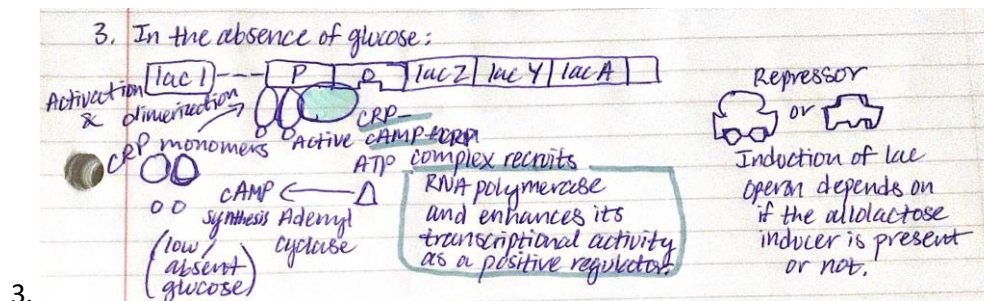 3. In the absence of glucose:
lac I
P
O
lac Z
lac Y
lac A
Activation
& dimerization
CRP monomers
Active
CRP-
cAMP
complex recruits
RNA polymerase
and enhances its
transcriptional activity
as a positive regulator.
ATP
cAMP
synthesis
Adenyl
cyclase
(low/
absent
glucose)
Repressor
or
Induction of lac
operon depends on
if the allolactose
inducer is present
or not.
3.